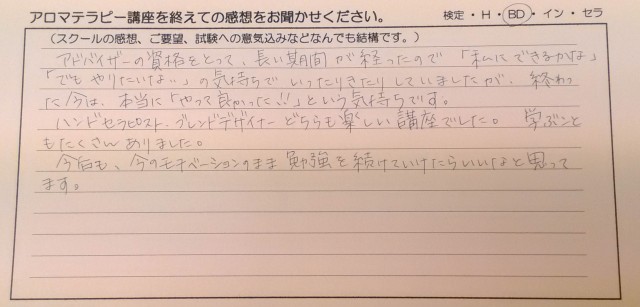 アロマテラピー講座を終えての感想をお聞かせください。
検定・H・BD・イン・セラ
(スクールの感想、ご要望、試験への意気込みなどなんでも結構です。)
アドバイザーの資格をとって、長い期間が経ったので「私にできるかな」
「でもやりたいな…」の気持ちでいったりきたりしていましたが、終わっ
た今は、本当に「やって良かった!!」という気持ちです。
ハンドセラピスト、ブレンドデザイナーどちらも楽しい講座でした。学ぶこと
もたくさんありました。
今后も、今のモチベーションのまま勉強を続けていけたらいいなと思って
ます。